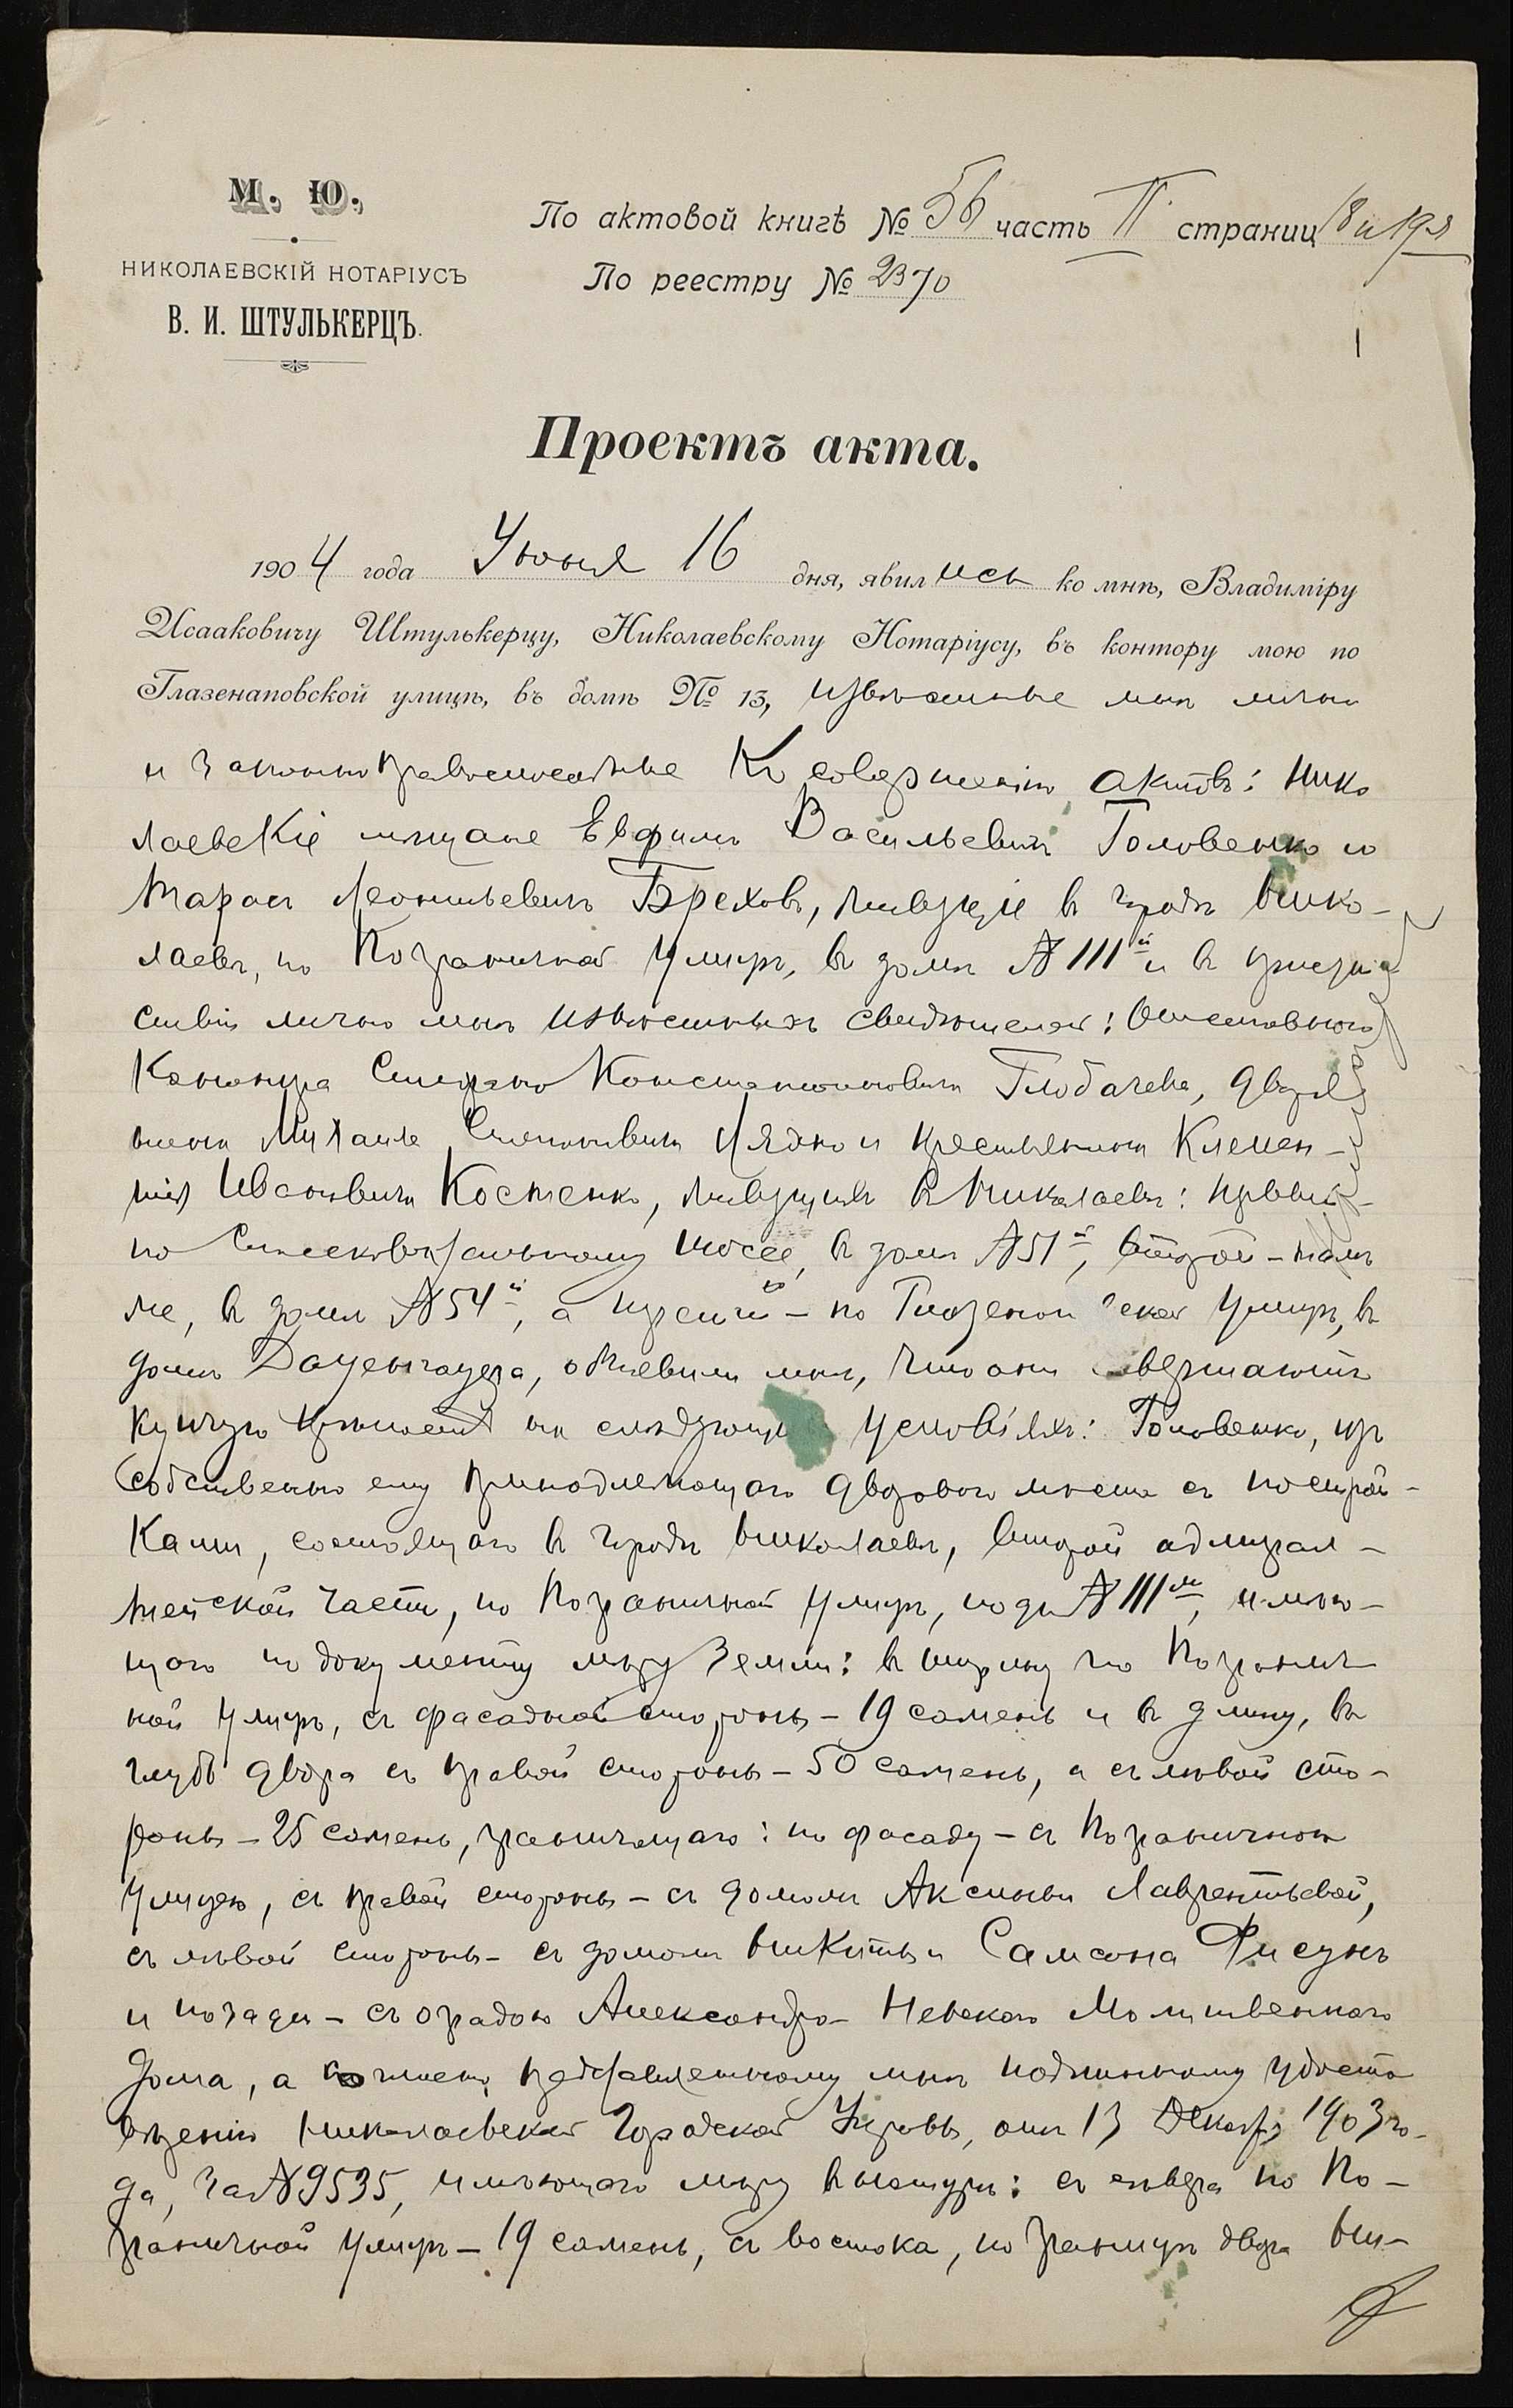 М. Ю.
НИКОЛАЕВСКІЙ НОТАРІУСЪ
В. И. ШТУЛЬКЕРЦЪ.
По актовой книгѣ № 56 часть II страниц 18 и 19я
По реестру № 2370
1
Проектъ акта.
1904 года Іюня 16 дня, явились ко мнѣ, Владиміру
Исааковичу Штулькерцу, Николаевскому Нотаріусу, въ контору мою по
Глазенаповской улицѣ, въ домѣ № 13, извѣстные мнѣ лично
и законноправоспособные къ совершенію актовъ: Нико
лаевскіе мѣщане Евфимъ Васильевичъ Головенко и
Тарасъ Леонтьевичъ Бреховъ, живущіе въ городѣ Нико-
лаевѣ, по Пограничной улицѣ, въ домѣ № 111й и въ присут
ствіи лично мнѣ извѣстныхъ свидѣтелей: Отставного
Степана Константиновича Глобачева, дворя
нина Михаила и крестьянина Клемен-
тія Ивановича Костенко, живущихъ въ Николаевѣ: первый-
по шоссе, въ домѣ № 51й, второй - тамъ
же, въ домѣ № 54й, а третій - по улицѣ, въ
домѣ объявили мнѣ, что они совершаютъ
купчую крѣпость на слѣдующихъ условіяхъ: Головенко, изъ
собственно ему принадлежащаго двороваго мѣста съ построй-
ками, состоящаго въ городѣ Николаевѣ, второй адмирал-
тейской части, по Пограничной улицѣ, подъ № 111м, имѣю-
щаго по документу мѣру земли: въ ширину по Погранич
ной улицѣ, съ фасадной стороны - 19 сажень и въ длину, въ
глубь двора съ правой стороны - 50 сажень, а съ лѣвой сто-
роны - 25 сажень, граничащаго: по фасаду - съ Пограничною
улицею, съ правой стороны - съ домомъ Аксиньи Лаврентьевой,
съ лѣвой стороны - съ домомъ Никиты и Самсона Фисунъ
и позади - съ оградою Александро-Невскаго Молитвеннаго
дома, а представленному мнѣ подлинному удосто
вѣренію Николаевской Городской Управы, отъ 13 Декабря 1903 го-
да, за № 9535, имѣющаго мѣру въ натурѣ: съ сѣвера по По-
граничной улицѣ - 19 сажень, съ востока, по границѣ двора Ни-